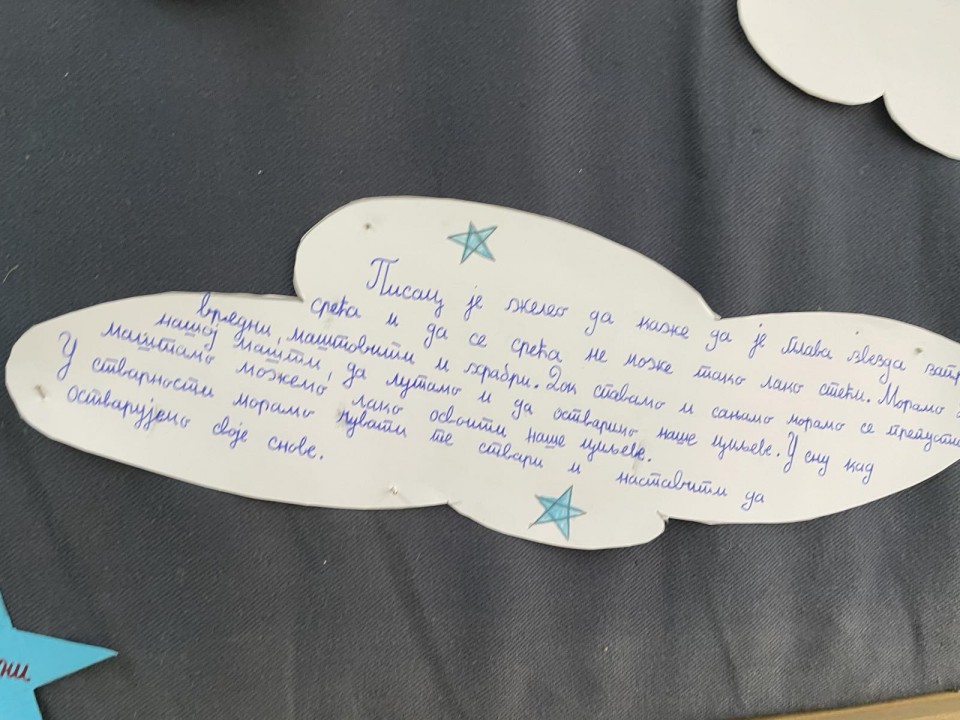 Писац је желео да каже да је плава звезда
срећа и да се срећа не може тако лако стећи. Морамо
вредни, маштовити и храбри. Док спавамо и сањамо морамо се
нашој машти, да лутамо и да остваримо наше циљеве. У сну кад
маштамо можемо лако освоити наше циљеве.
У стварности морамо чувати те ствари и наставити да
остварујемо своје снове.